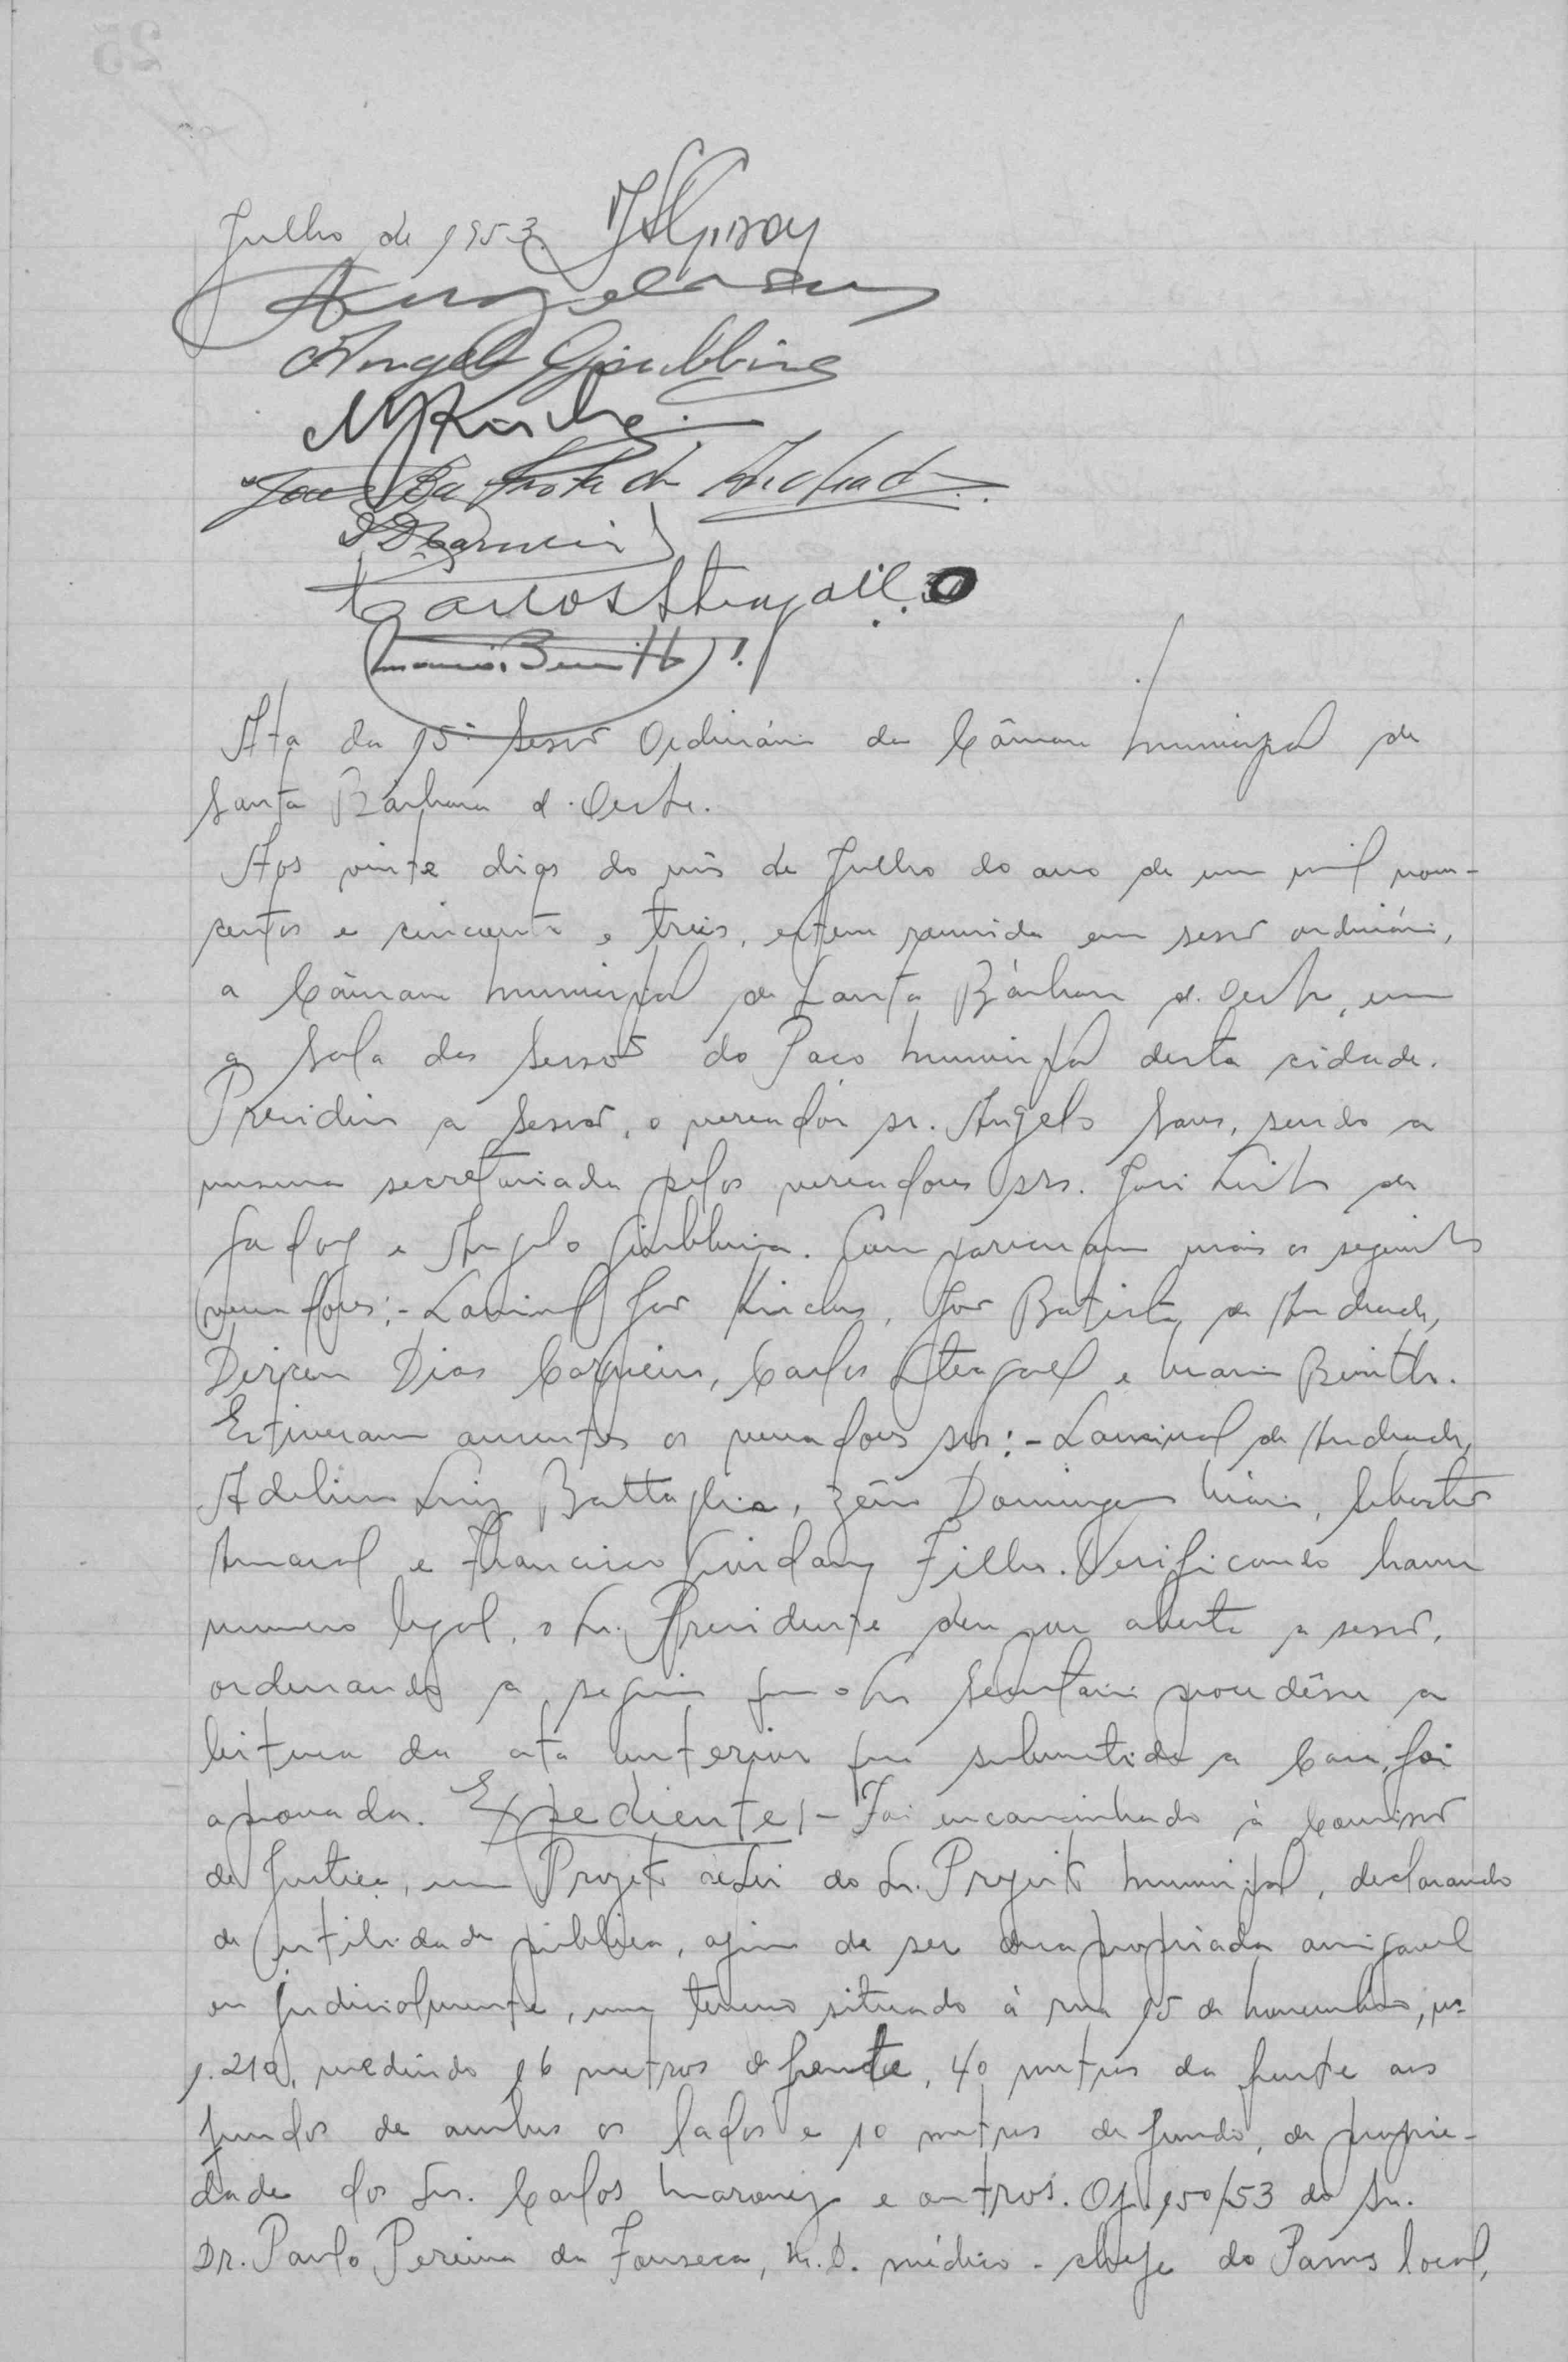 Julho de 1953.
Angelo Giubbina
João Batista de Andrade
DDCarneiro
Carlos Steagall
Ata da 15ª Sessão Ordinária da Câmara Municipal de
Santa Bárbara d'Oeste.
Aos vinte dias do mês de Julho do ano de um mil nove-
centos e cincoenta e treis, esteve reunida em sessão ordinária,
a Câmara Municipal de Santa Bárbara d'Oeste, em
a Sala das Sessões do Paço Municipal desta cidade.
Presidiu a sessão, o vereador sr. Angelo Sans, sendo a
mesma secretariada pelos vereadores srs. José Leite de
Godoy e Angelo Giubbina. Compareceram mais os seguintes
vereadores:- Lourival José Martins, João Batista de Andrade,
Dirceu Dias Carneiro, Carlos Steagall e Mario Benitto.
Estiveram ausentes os vereadores srs:- Lourival de Andrade,
Adelino Luiz Battaglia, Zêno Domingos Maia, Sebastião
Amaral e Francisco Giordano Filho. Verificando haver
numero legal, o Sr. Presidente deu por aberta a sessão,
ordenando a seguir que o Sr. Secretario procedêsse a
leitura da ata anterior que submetida a Casa, foi
aprovada. Expediente:- Foi encaminhado à Comissão
de Justiça, um Projeto de Lei do Sr. Prefeito Municipal, declarando
de utilidade pública, afim de ser desapropriada amigavel
ou judicialmente, um terreno situado à rua 15 de Novembro, nº
1.210, medindo 16 metros de frente, 40 metros da frente aos
fundos de ambos os lados e 10 metros de fundo, de proprie-
dade dos Srs. Carlos e outros. Of. 150/53 do Sr.
Dr. Paulo Pereira da Fonseca, M.D. médico-chefe do Pams local,